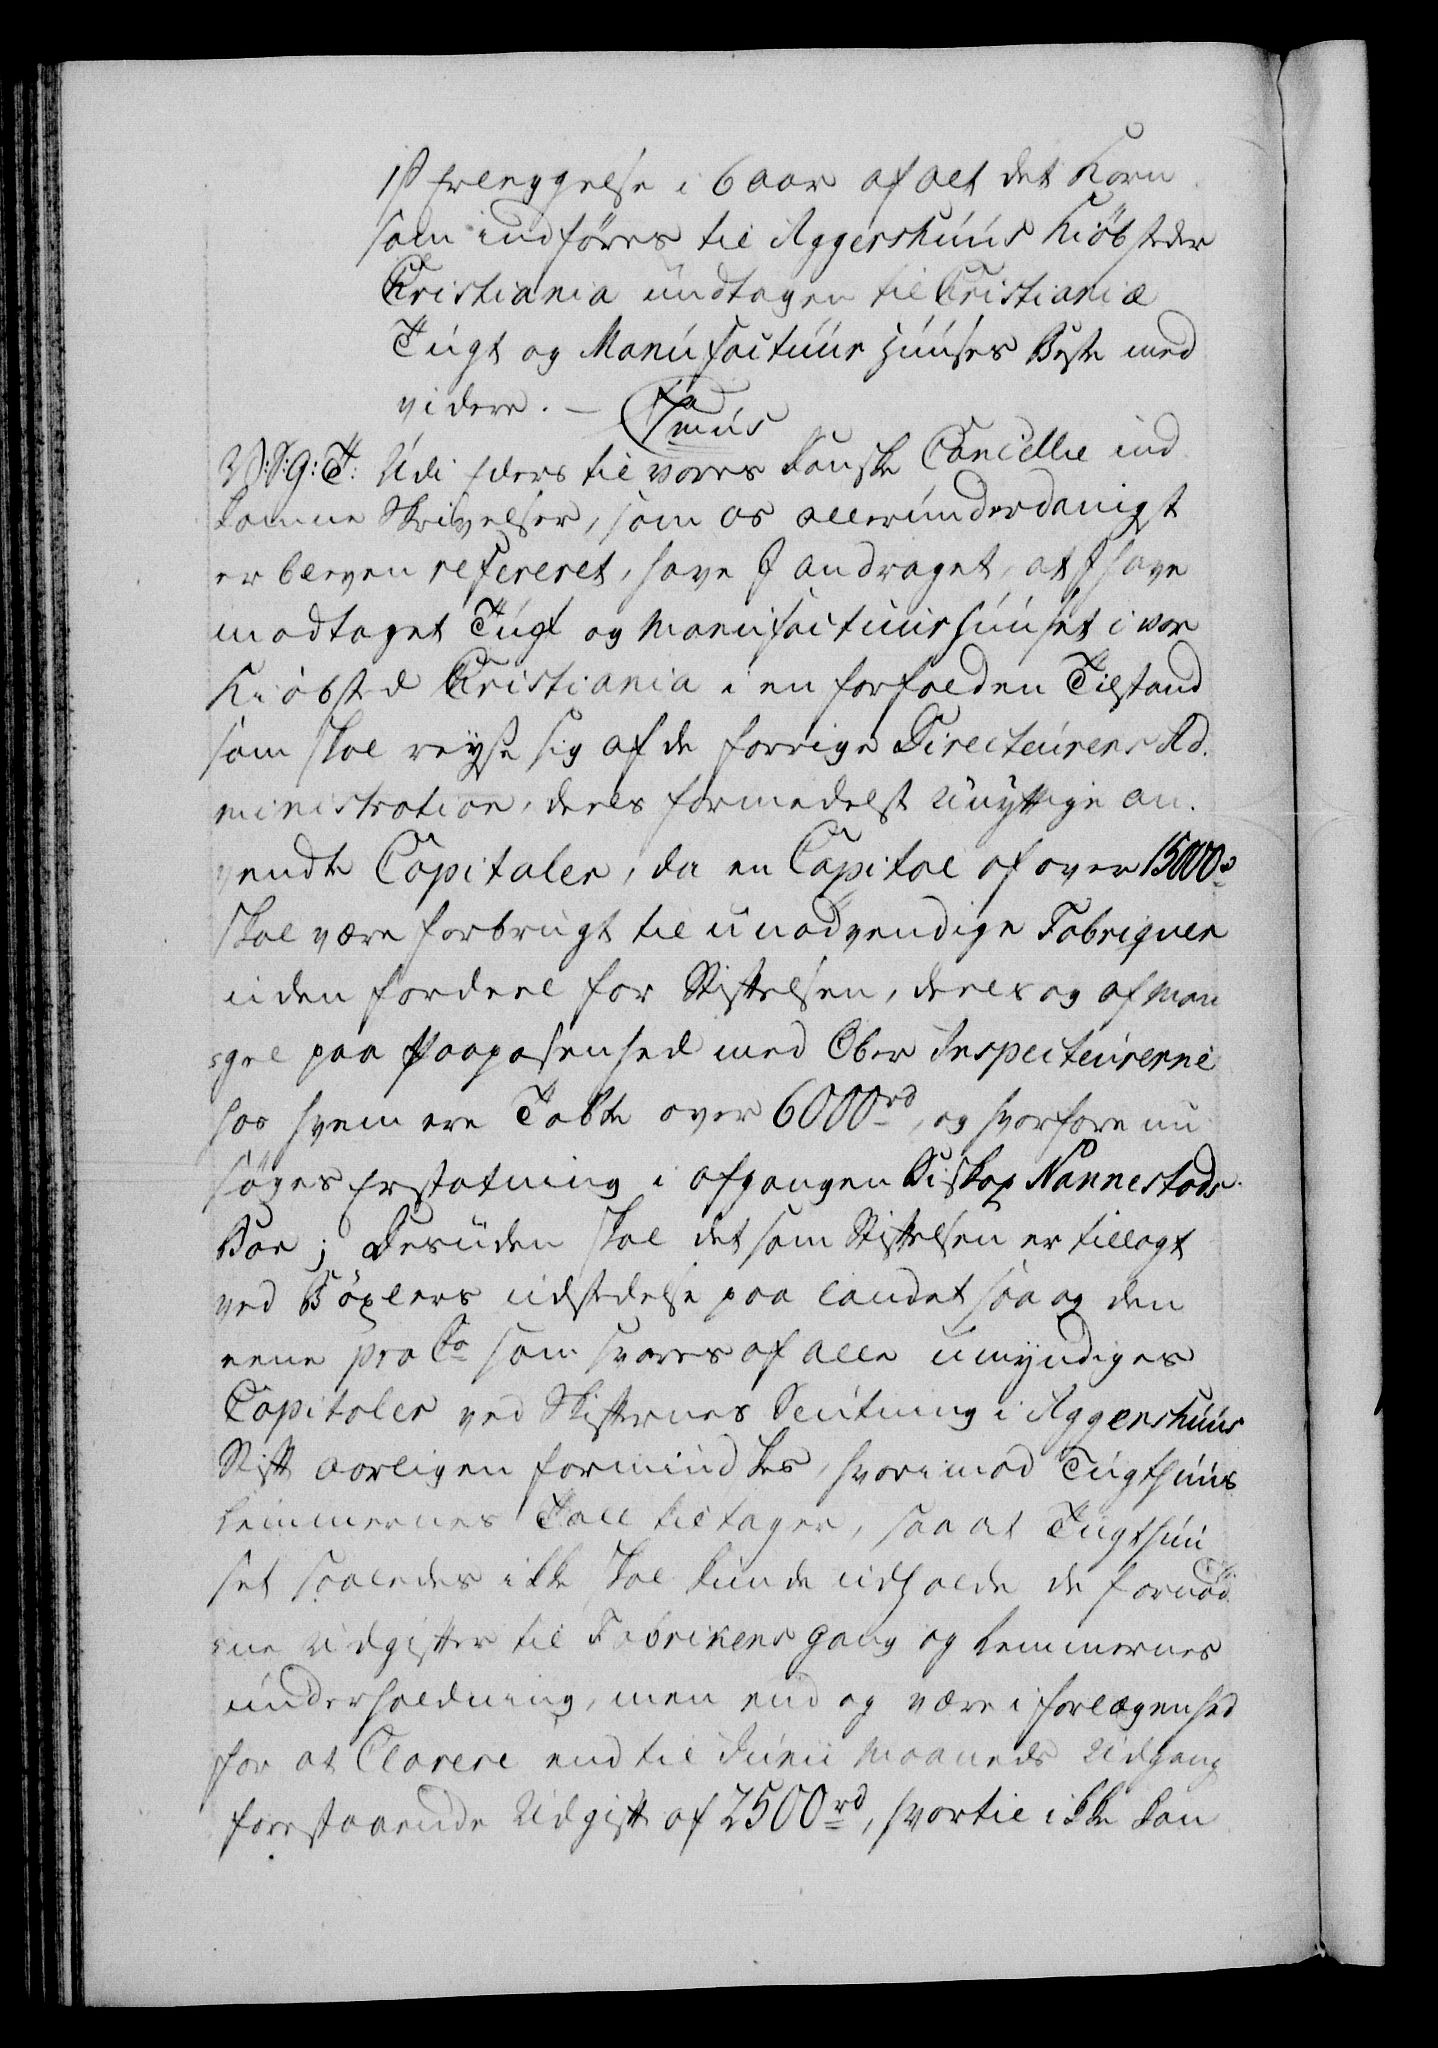 1ß Erleggelse i 6 aar af alt det Korn
som indføres til Aggershuus Kiøbsteder
Christiania undtagen til Christianiæ
Tugt og Manufactuur Huuses Beste med
videre. —
V: S: G: T: Udi Eders til vores Danske Cancellie ind
komne Skrivelser, som os allerunderdanigst
er bleven refereret, have I andraget, at I have
modtaget Tugt og Manufactuurhuuset i vor
Kiøbsted Christiania i en forfalden Tilstand
som skal reyse sig af de forrige Directeurers Ad.
ministration, deels formedelst unyttige an.
vendte Capitaler, da en Capital af over 15000 rd
skal være forbrugt til unødvendige Fabriquer
uden fordeel for Stiftelsen, deels og af Man
gel paa Paapasenhed med Ober Inspecteurerne
hos hvem ere Tabte over 6000 rd, og hvorfore nu
søges Erstatning i afgangen Biskop Nannestads
Boe; Desuden skal det som Stiftelsen er tillagt
ved Böxlers udstedelse paa landet saa og den
eene pro Co som svares af alle umyndiges
Capitaler ved Skifternes Slutning i Aggershuus
Stift aarligen formindskes, hvorimod Tugthuus
Lemmernes Tall tiltager, saa at Tugthuu
set saaledes ikke skal kunde udholde de fornød
ne Udgifter til Fabrikens gang og Lemmernes
underholdning, men end og være i forlegenhed
for at Clarere end til Junii Maaneds Udgang
forestaaende Udgift af 2500 rd, hvortil ikke kan